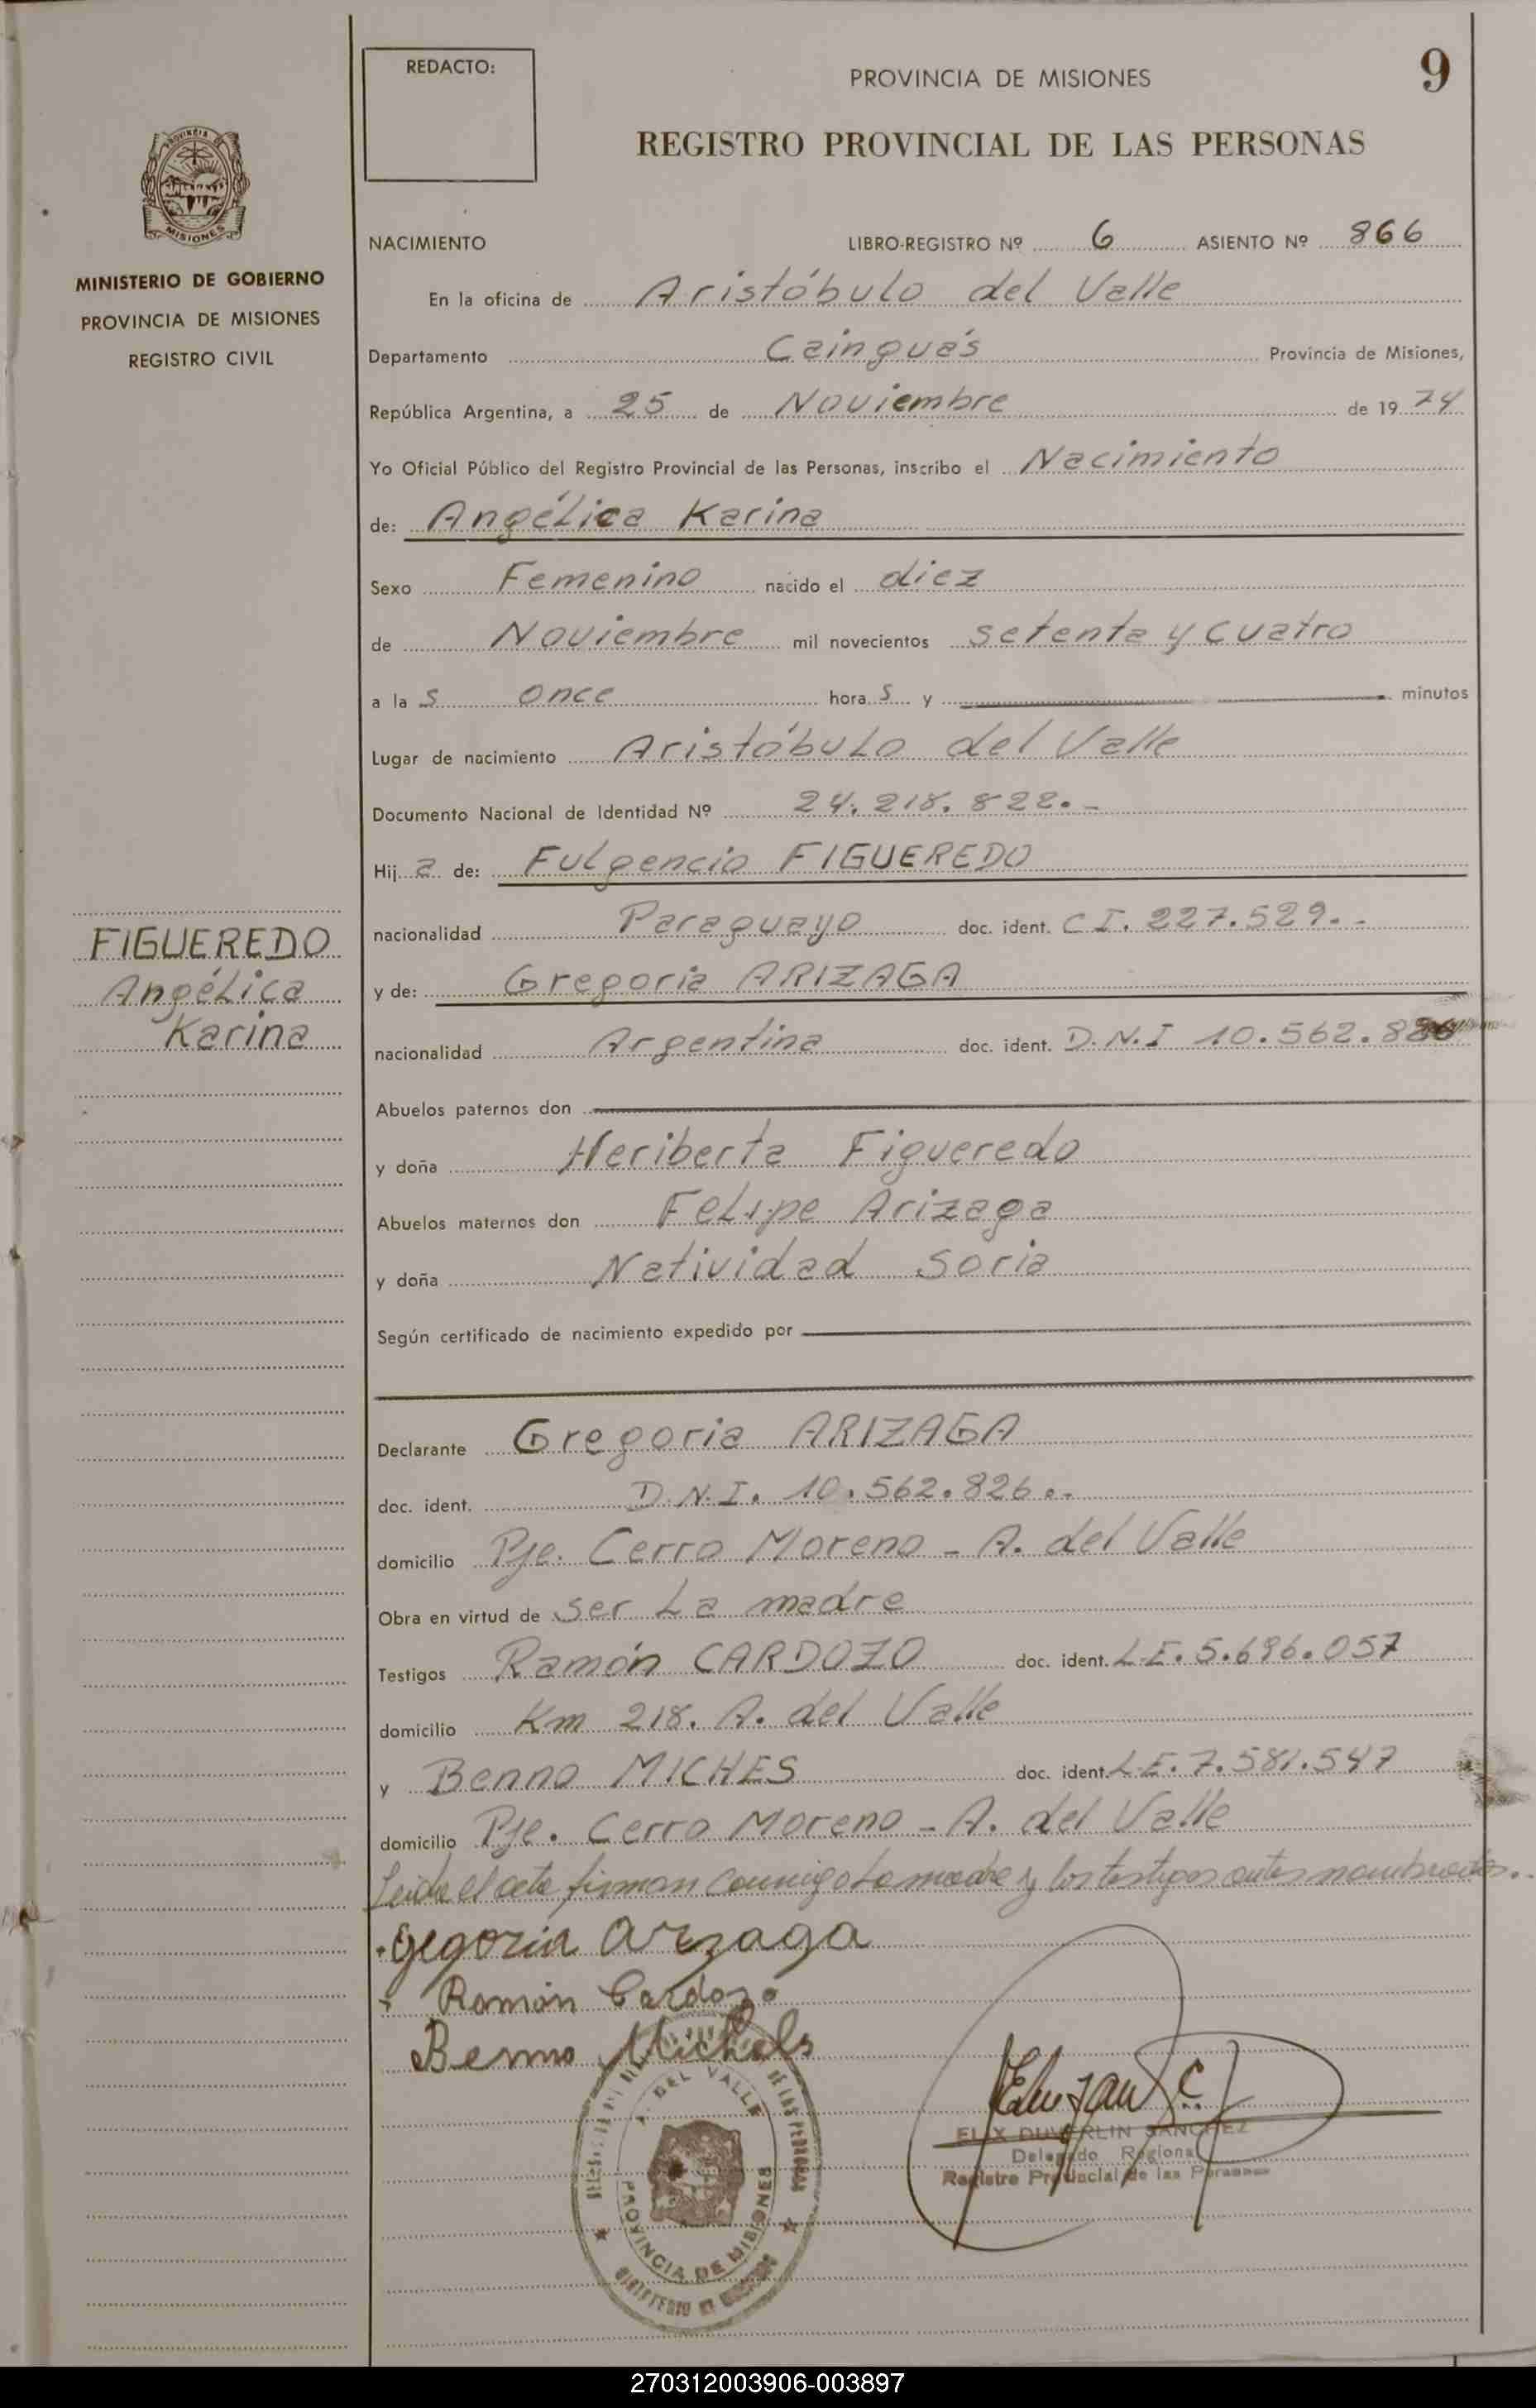 REDACTO:
PROVINCIA DE MISIONES
9
REGISTRO PROVINCIAL DE LAS PERSONAS
PROVINCIA DE
MISIONES
MINISTERIO DE GOBIERNO
PROVINCIA DE MISIONES
REGISTRO CIVIL
NACIMIENTO LIBRO-REGISTRO Nº 6 ASIENTO Nº 866
En la oficina de Aristóbulo del Valle
Departamento Cainguás Provincia de Misiones,
República Argentina, a 25 de Noviembre de 19 74
Yo Oficial Público del Registro Provincial de las Personas, inscribo el Nacimiento
de: Angélica Karina
Sexo Femenino nacido el diez
de Noviembre mil novecientos setenta y cuatro
a la s once hora s y minutos
Lugar de nacimiento Aristóbulo del Valle
Documento Nacional de Identidad Nº 24.218.822.-
Hij a de: Fulgencio FIGUEREDO
nacionalidad Paraguayo doc. ident. C I. 227.529.-
FIGUEREDO
Angélica
Karina
y de: Gregoria ARIZAGA
nacionalidad Argentina doc. ident. D.N.I 10.562.826
Abuelos paternos don
y doña Heriberta Figueredo
Abuelos maternos don Felipe Arizaga
y doña Natividad Soria
Según certificado de nacimiento expedido por
Declarante Gregoria ARIZAGA
doc. ident. D.N.I. 10.562.826.-
domicilio Pje. Cerro Moreno - A. del Valle
Obra en virtud de ser La madre
Testigos Ramón CARDOZO doc. ident. L.E. 5.696.057
domicilio Km 218. A. del Valle
y Benno MICHES doc. ident. L.E. 7.581.547
domicilio Pje. Cerro Moreno - A. del Valle
Leida el acta firman conmigo la madre y los testigos antes nombrados.
Gegoria Arzaga
Ramón Cardozo
Benno Michels
A. DEL VALLE
DE LAS PERSONAS
PROVINCIA DE MISIONES
SANCHEZ
Delegado Regional
Registro Provincial de las Personas
270312003906-003897